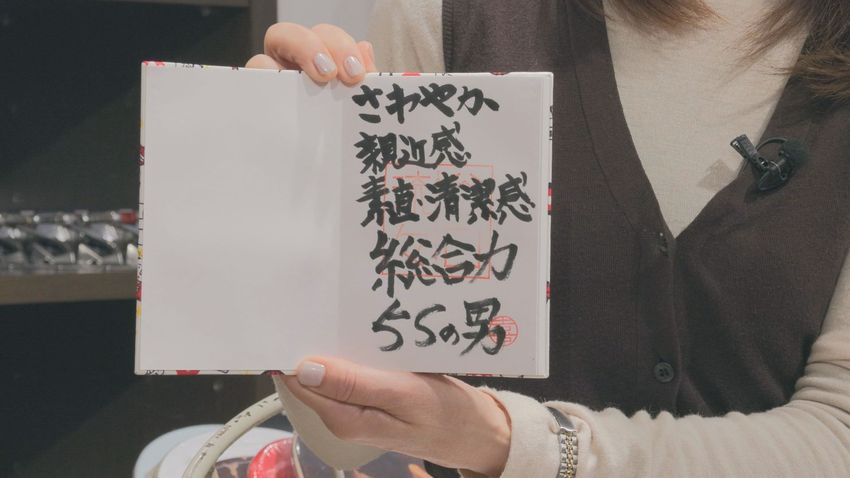 さわやか
親近感
素直・清潔感
総合力
5Sの男